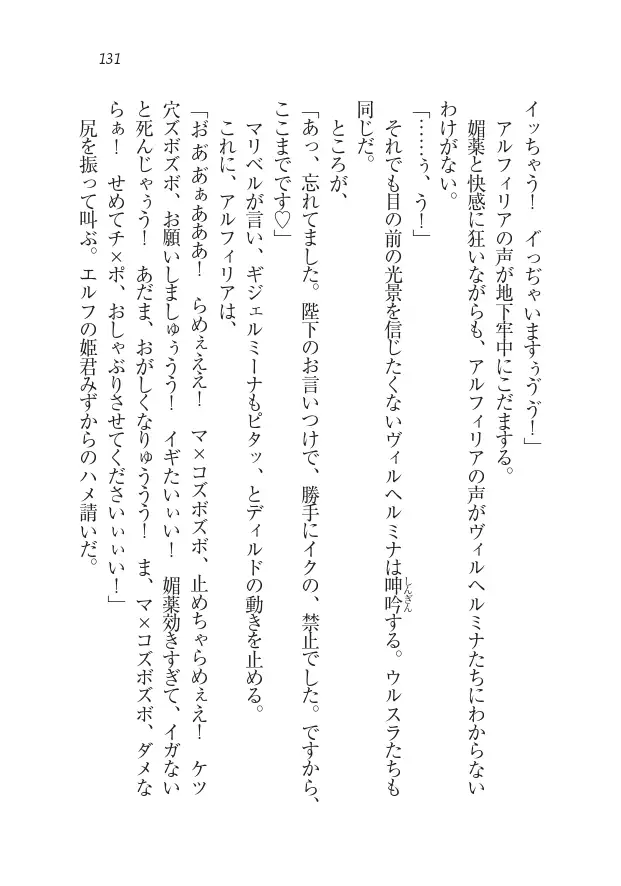 131
イッちゃう！　イっぢゃいますぅゔゔ！」
アルフィリアの声が地下牢中にこだまする。
媚薬と快感に狂いながらも、アルフィリアの声がヴィルヘルミナたちにわからない
わけがない。
「……ぅ、う！」
それでも目の前の光景を信じたくないヴィルヘルミナは呻吟する。ウルスラたちも
しんぎん
同じだ。
ところが、
「あっ、忘れてました。陛下のお言いつけで、勝手にイクの、禁止でした。ですから、
ここまでです♡」
マリベルが言い、ギジェルミーナもピタッ、とディルドの動きを止める。
これに、アルフィリアは、
「お゙あ゙あ゙ぁあああ！　らめぇええ！　マ×コズボズボ、止めちゃらめぇえ！　ケツ
穴ズボズボ、お願いしましゅぅうう！　イギたいぃい！　媚薬効きすぎて、イガない
と死んじゃぅう！　あだま、おがしくなりゅううう！　ま、マ×コズボズボ、ダメな
らぁ！　せめてチ×ポ、おしゃぶりさせてくださいぃぃい！」
尻を振って叫ぶ。エルフの姫君みずからのハメ請いだ。